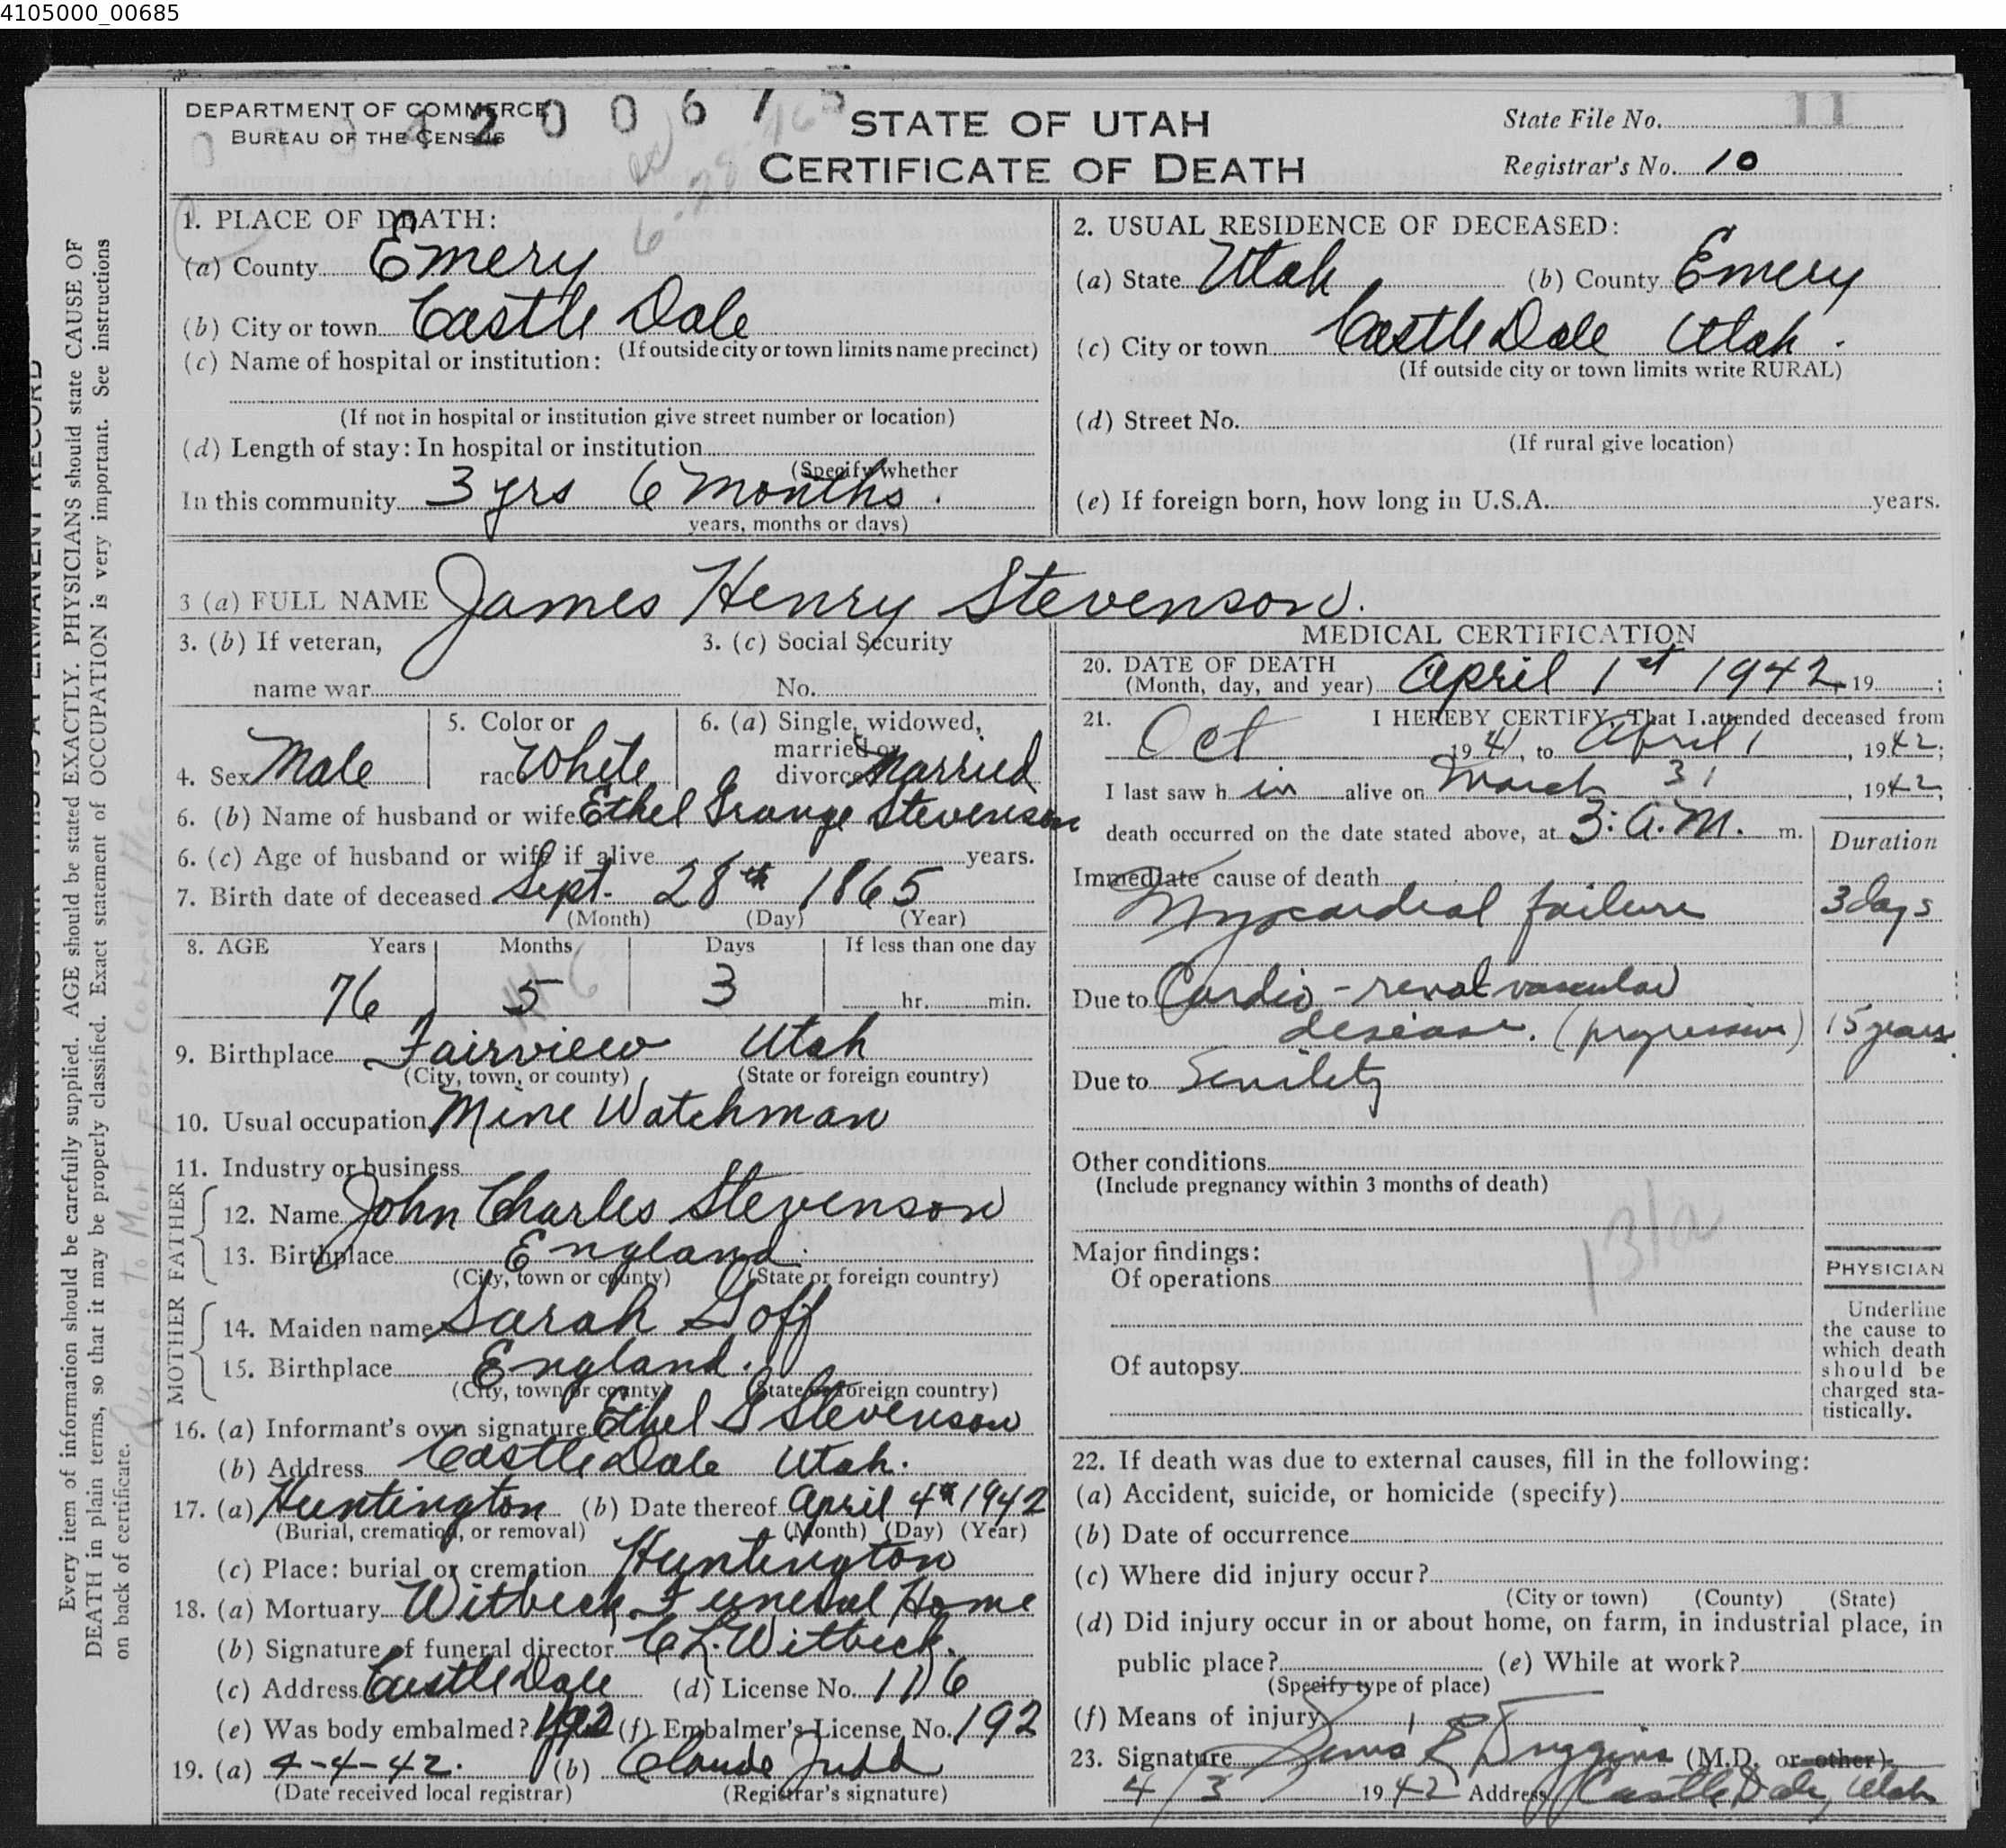 4105000_00685
DEPARTMENT OF COMMERCE
BUREAU OF THE CENSUS
STATE OF UTAH
CERTIFICATE OF DEATH
State File No. 11
Registrar's No. 10
1. PLACE OF DEATH:
(a) County Emery
(b) City or town Castle Dale
(If outside city or town limits name precinct)
(c) Name of hospital or institution:
(If not in hospital or institution give street number or location)
(d) Length of stay: In hospital or institution
(Specify whether
In this community 3 yrs 6 months.
years, months or days)
2. USUAL RESIDENCE OF DECEASED:
(a) State Utah (b) County Emery
(c) City or town Castle Dale Utah.
(If outside city or town limits write RURAL)
(d) Street No.
(If rural give location)
(e) If foreign born, how long in U.S.A. years.
3 (a) FULL NAME James Henry Stevenson.
3. (b) If veteran,
name war
3. (c) Social Security
No.
4. Sex Male
5. Color or
race White
6. (a) Single, widowed,
married or
divorced Married
6. (b) Name of husband or wife Ethel Grange Stevenson
6. (c) Age of husband or wife if alive years.
7. Birth date of deceased Sept. 28th 1865
(Month) (Day) (Year)
8. AGE Years Months Days If less than one day
76 5 3 hr. min.
9. Birthplace Fairview Utah
(City, town, or county) (State or foreign country)
10. Usual occupation Mine Watchman
11. Industry or business
FATHER
12. Name John Charles Stevenson
13. Birthplace England.
(City, town or county) (State or foreign country)
MOTHER
14. Maiden name Sarah Goff
15. Birthplace England.
(City, town or county) (State or foreign country)
16. (a) Informant's own signature Ethel G Stevenson
(b) Address Castle Dale Utah.
17. (a) Huntington (b) Date thereof April 4th 1942
(Burial, cremation, or removal) (Month) (Day) (Year)
(c) Place: burial or cremation Huntington
18. (a) Mortuary Witbeck Funeral Home
(b) Signature of funeral director C L. Witbeck.
(c) Address Castle Dale (d) License No. 1106
(e) Was body embalmed? (f) Embalmer's License No. 192
19. (a) 4-4-42. (b) Claude Judd
(Date received local registrar) (Registrar's signature)
MEDICAL CERTIFICATION
20. DATE OF DEATH
(Month, day, and year) April 1st 1942, 19 ;
21. I HEREBY CERTIFY, That I attended deceased from
Oct 1941, to April 1, 1942;
I last saw h im alive on March 31, 1942,
death occurred on the date stated above, at 3: A.M. m.
Duration
Immediate cause of death
Myocardial failure 3 days
Due to Cardio-renal vascular
disease. (progressive) 15 years.
Due to Senility
Other conditions
(Include pregnancy within 3 months of death)
131a
Major findings:
Of operations
Of autopsy
PHYSICIAN
Underline
the cause to
which death
should be
charged sta-
tistically.
22. If death was due to external causes, fill in the following:
(a) Accident, suicide, or homicide (specify)
(b) Date of occurrence
(c) Where did injury occur?
(City or town) (County) (State)
(d) Did injury occur in or about home, on farm, in industrial place, in
public place? (e) While at work?
(Specify type of place)
(f) Means of injury
23. Signature Duggins (M.D. or other)
4/3 1942 Address Castle Dale, Utah
Every item of information should be carefully supplied. AGE should be stated EXACTLY. PHYSICIANS should state CAUSE OF
DEATH in plain terms, so that it may be properly classified. Exact statement of OCCUPATION is very important. See instructions
on back of certificate.